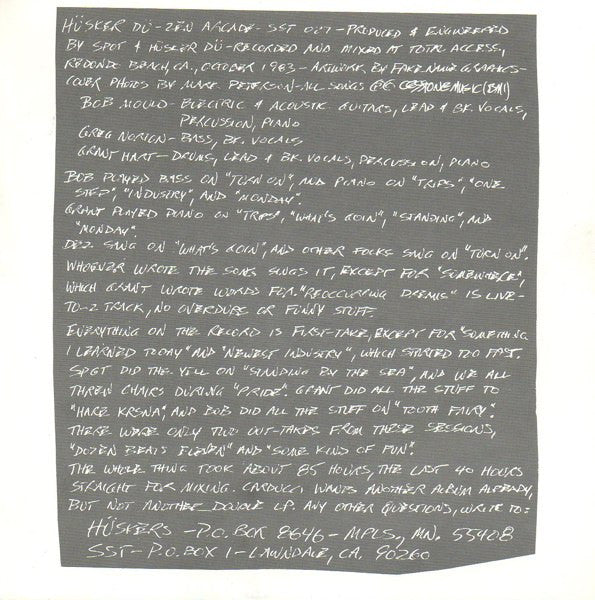 HÜSKER DÜ - ZEN ARCADE - SST 027 - PRODUCED & ENGINEERED
BY SPOT & HÜSKER DÜ - RECORDED AND MIXED AT TOTAL ACCESS,
REDONDO BEACH, CA., OCTOBER 1983 - ARTWORK BY FAKE NAME GRAPHICS -
COVER PHOTOS BY MARK PETERSON - ALL SONGS @© CESSTONE MUSIC (BMI)
BOB MOULD - ELECTRIC & ACOUSTIC GUITARS, LEAD & BK. VOCALS,
PERCUSSION, PIANO
GREG NORTON - BASS, BK. VOCALS
GRANT HART - DRUMS, LEAD & BK. VOCALS, PERCUSSION, PIANO
BOB PLAYED BASS ON "TURN ON", AND PIANO ON "TRPS", "ONE
STEP", "INDUSTRY", AND "MONDAY".
GRANT PLAYED PIANO ON "TRPS", "WHAT'S GOIN", "STANDING", AND
"MONDAY".
DEZ SANG ON "WHAT'S GOIN", AND OTHER FOLKS SANG ON "TURN ON".
WHOEVER WROTE THE SONG SINGS IT, EXCEPT FOR "SOMEWHERE",
WHICH GRANT WROTE WORDS FOR. "REOCCURRING DREAMS" IS LIVE-
TO-2 TRACK, NO OVERDUBS OR FUNNY STUFF.
EVERYTHING ON THE RECORD IS FIRST-TAKE, EXCEPT FOR "SOMETHING
I LEARNED TODAY" AND "NEWEST INDUSTRY", WHICH STARTED TOO FAST.
SPOT DID THE YELL ON "STANDING BY THE SEA", AND WE ALL
THREW CHAIRS DURING "PRIDE". GRANT DID ALL THE STUFF TO
"HARE KRSNA", AND BOB DID ALL THE STUFF ON "TOOTH FAIRY".
THERE WERE ONLY TWO OUT-TAKES FROM THESE SESSIONS,
"DOZEN BEATS ELEVEN" AND "SOME KIND OF FUN".
THE WHOLE THING TOOK ABOUT 85 HOURS, THE LAST 40 HOURS
STRAIGHT FOR MIXING. CARDUCCI WANTS ANOTHER ALBUM ALREADY,
BUT NOT ANOTHER DOUBLE LP. ANY OTHER QUESTIONS, WRITE TO:
HÜSKERS - P.O. BOX 8646 - MPLS, MN. 55408
SST - P.O. BOX 1 - LAWNDALE, CA. 90260